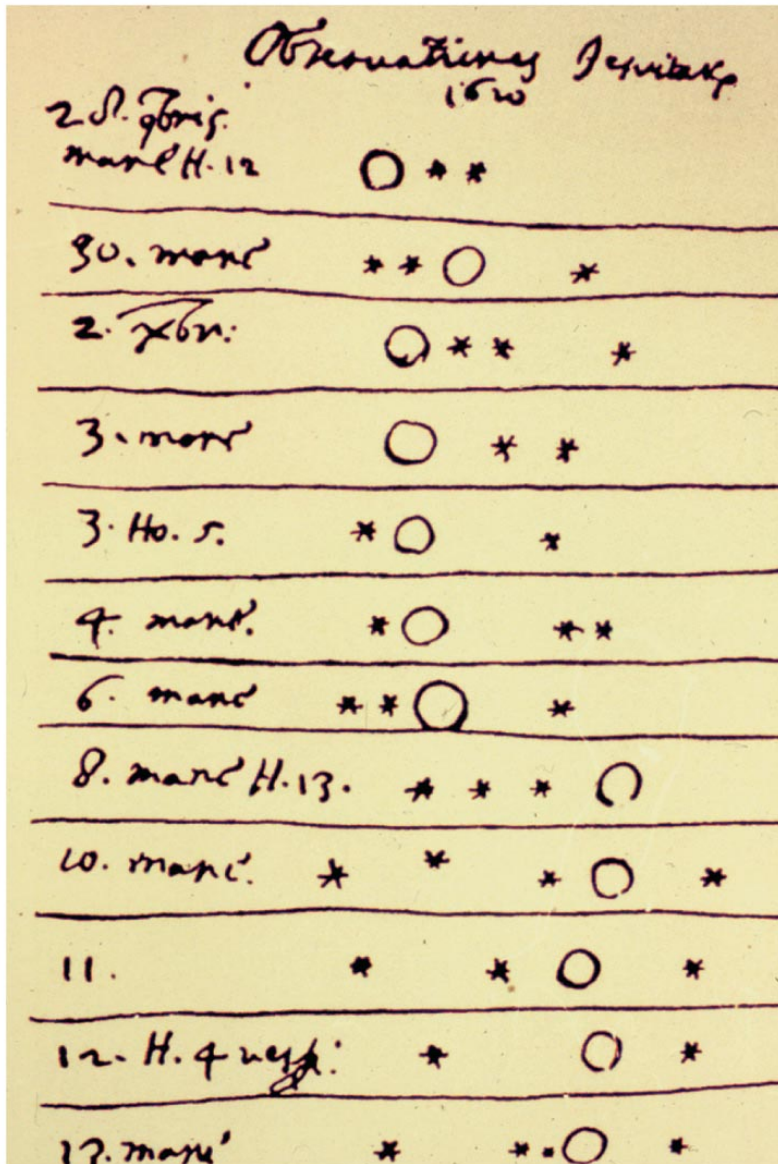 Observationes Jesuitarum
1610
2. d. 9bris.
mane H. 12
30. mane
2. Xbr:
3. mane
3. Ho. 5.
4. mane.
6. mane
8. mane H. 13.
10. mane.
11.
12. H. 4 vesp:
13. mane